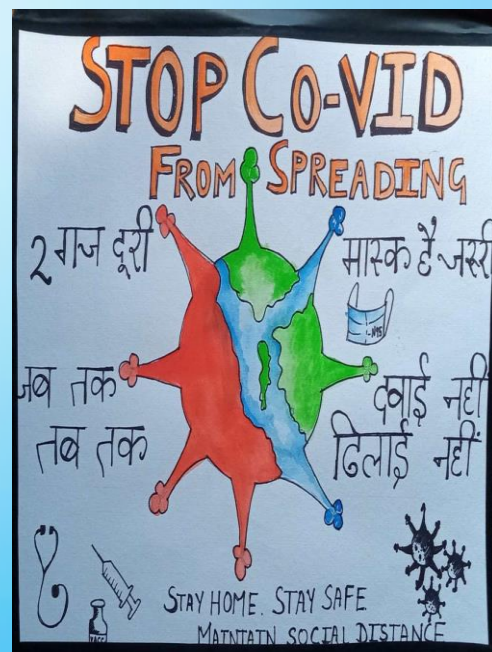 STOP CO-VID
FROM SPREADING
2 गज दूरी
मास्क है जरूरी
N95
जब तक दवाई नहीं
तब तक ढिलाई नहीं
STAY HOME. STAY SAFE
MAINTAIN SOCIAL DISTANCE
VACC